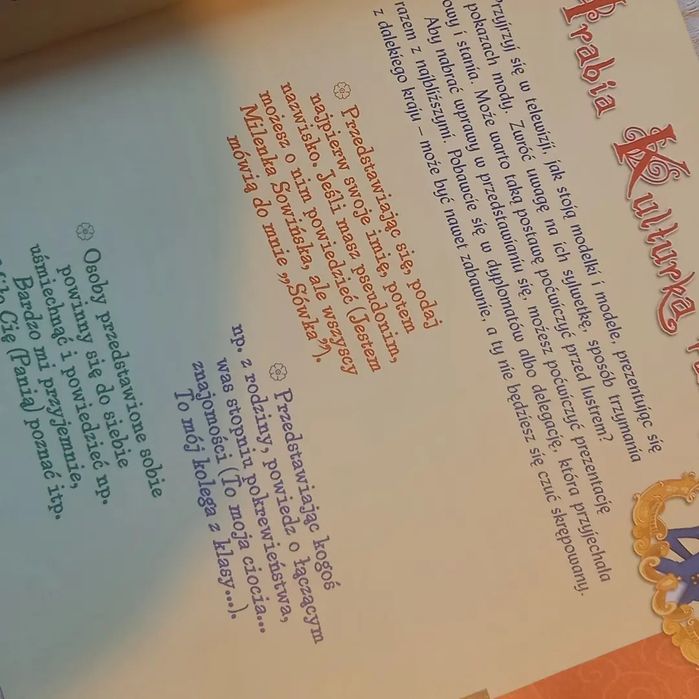 Hrabia Kulturka
Przyjrzyj się w telewizji, jak stoją modelki i modele, prezentując się
pokazach mody. Zwróć uwagę na ich sylwetkę, sposób trzymania
owy i stania. Może warto taką postawę poćwiczyć przed lustrem?
Aby nabrać wprawy w przedstawianiu się, możesz poćwiczyć prezentację
razem z najbliższymi. Pobawcie się w dyplomatów albo delegację, która przyjechała
z dalekiego kraju – może być nawet zabawnie, a ty nie będziesz się czuć skrępowany.
Przedstawiając się, podaj
najpierw swoje imię, potem
nazwisko. Jeśli masz pseudonim,
możesz o nim powiedzieć (Jestem
Milenka Sowińska, ale wszyscy
mówią do mnie „Sówka”).
Przedstawiając kogoś
np. z rodziny, powiedz o łączącym
was stopniu pokrewieństwa,
znajomości (To moja ciocia...
To mój kolega z klasy...).
Osoby przedstawione sobie
powinny się do siebie
uśmiechnąć i powiedzieć np.
Bardzo mi przyjemnie,
Cię (Panią) poznać itp.